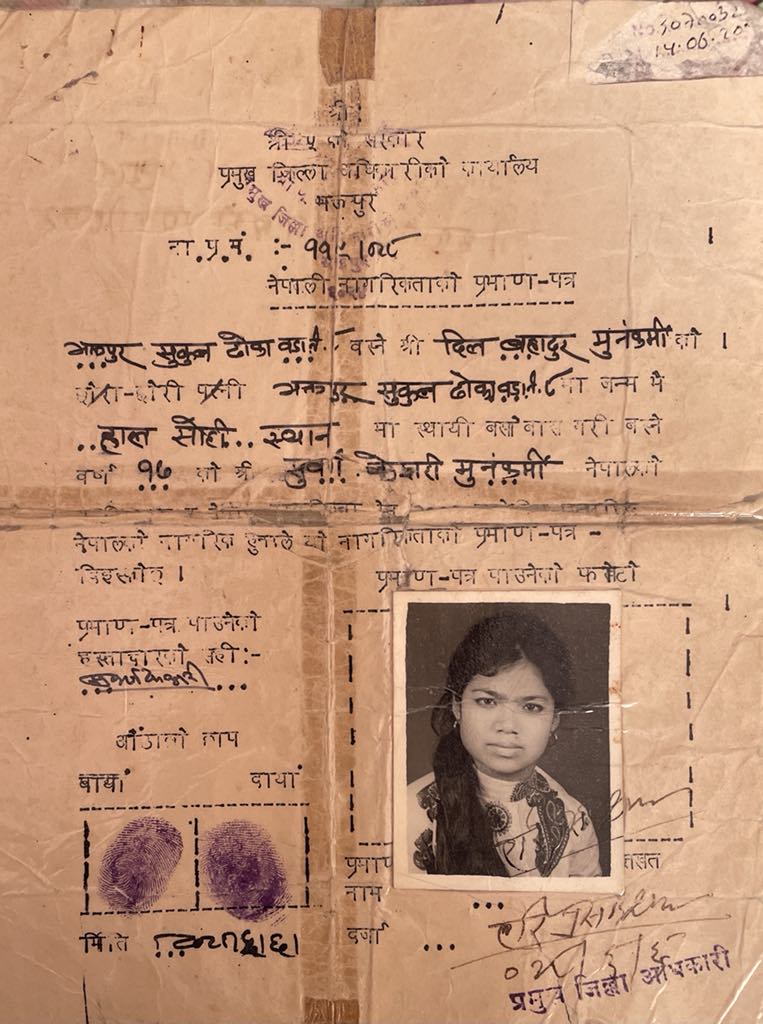 No. 5070032
14.06.20
श्री
श्री ५ को सरकार
प्रमुख जिल्ला अधिकारीको कार्यालय
भक्तपुर
ना.प्र.नं. :-
नेपाली नागरिकताको प्रमाण-पत्र
भक्तपुर सुकुल ढोका वडा नं. बस्ने श्री दिल बहादुर मुनंकर्मी को ।
छोरा-छोरी पत्नी भक्तपुर सुकुल ढोका वडा नं. ८ मा जन्म भै
..हाल सोही.. स्थान मा स्थायी बसोबास गरी बस्ने
वर्ष १७ को श्री सुवर्ण केशरी मुनंकर्मी नेपालको
नेपालको नागरिक हुनाले यो नागरिकताको प्रमाण-पत्र -
दिइएकोछ ।
प्रमाण-पत्र पाउनेको फोटो
प्रमाण-पत्र पाउनेको
हस्ताक्षरको सही:-
सुवर्ण केशरी
औंठाको छाप
बायां दायां
प्रमाण
नाम ...
मिति
दर्जा ...
प्रमुख जिल्ला अधिकारी